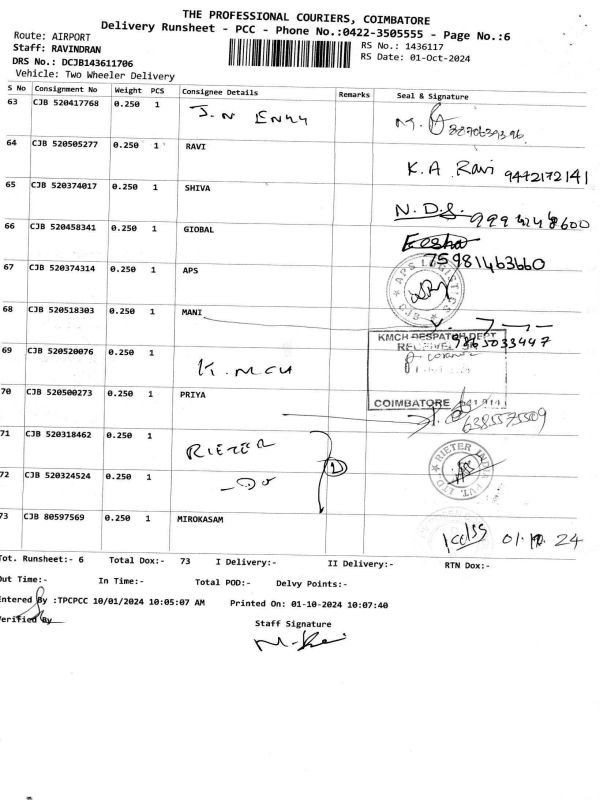 THE PROFESSIONAL COURIERS, COIMBATORE
Delivery Runsheet - PCC - Phone No.:0422-3505555 - Page No.:6
Route: AIRPORT
RS No.: 1436117
Staff: RAVINDRAN
RS Date: 01-Oct-2024
DRS No.: DCJB143611706
Vehicle: Two Wheeler Delivery
S No Consignment No Weight PCS Consignee Details Remarks Seal & Signature
63 CJB 520417768 0.250 1 J.N
64 CJB 520505277 0.250 1 RAVI K.A Ravi 9442172141
65 CJB 520374017 0.250 1 SHIVA N.D.S.
66 CJB 520458341 0.250 1 GIOBAL
75981463660
67 CJB 520374314 0.250 1 APS
68 CJB 520518303 0.250 1 MANI
KMCH DESPATCH DEPT
RECEIVED
69 CJB 520520076 0.250 1 K.MCH
70 CJB 520500273 0.250 1 PRIYA
COIMBATORE
71 CJB 520318462 0.250 1 RIETER
72 CJB 520324524 0.250 1 -Do
73 CJB 80597569 0.250 1 MIROKASAM 01.10.24
Tot. Runsheet:- 6 Total Dox:- 73 I Delivery:- II Delivery:- RTN Dox:-
Out Time:- In Time:- Total POD:- Delvy Points:-
Entered By :TPCPCC 10/01/2024 10:05:07 AM Printed On: 01-10-2024 10:07:40
Verified By
Staff Signature